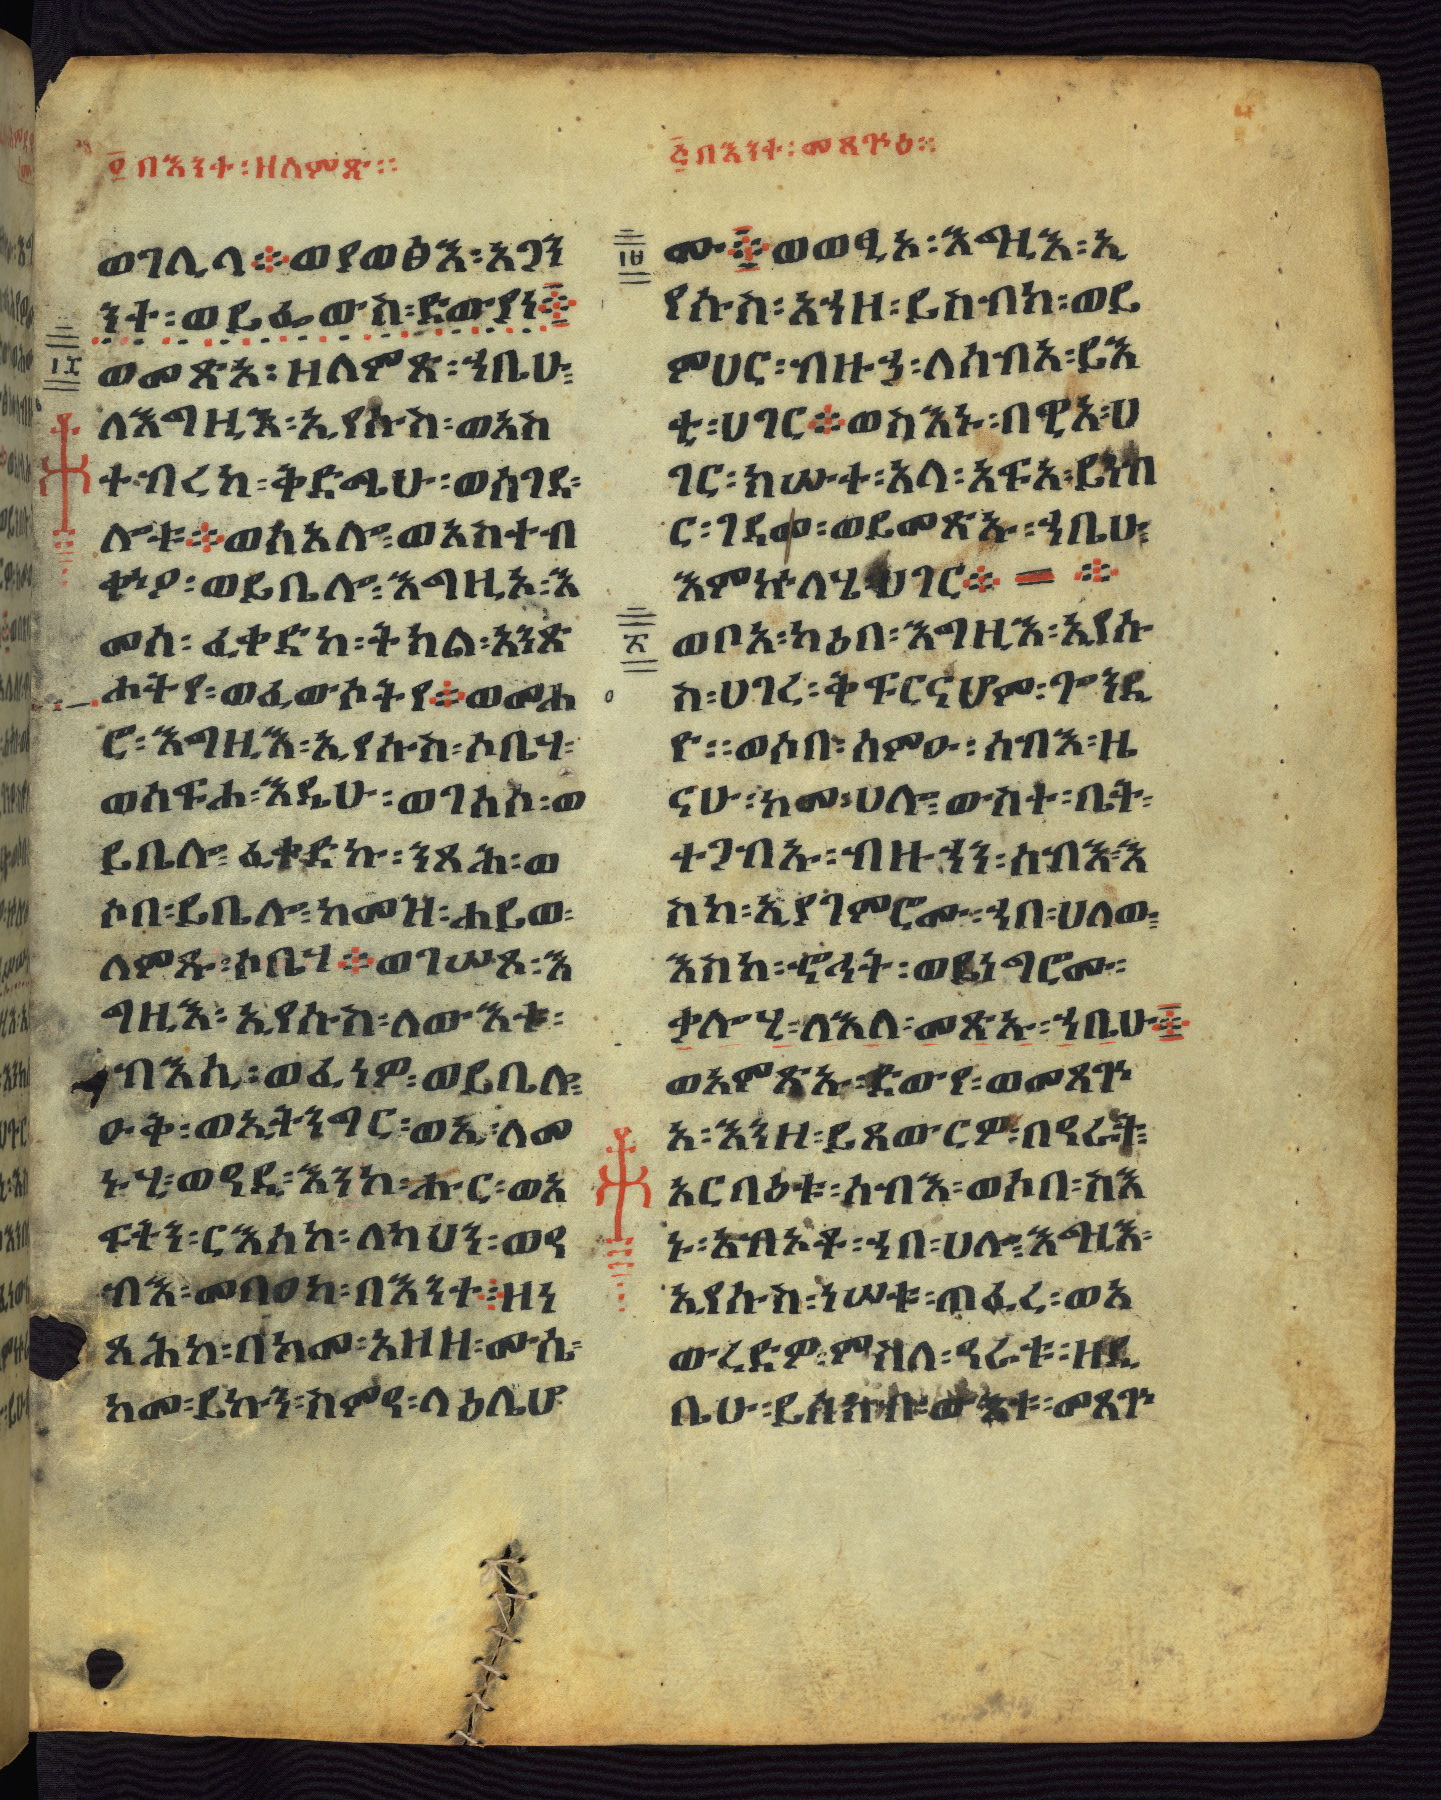 ፬ በእንተ ፡ ዘለምጽ ።
ወገሊላ ። ወያወፅእ ፡ አጋን
ንተ ፡ ወይፌውስ ፡ ድውያነ ።
ወመጽአ ፡ ዘለምጽ ፡ ኀቤሁ ፡
ለእግዚእ ፡ ኢየሱስ ፡ ወአስ
ተብረከ ፡ ቅድሜሁ ፡ ወሰገደ ፡
ሎቱ ። ወሰአሎ ፡ ወአስተብ
ቍዖ ፡ ወይቤሎ ፡ እግዚኦ ፡ እ
መሰ ፡ ፈቀድከ ፡ ትክል ፡ አንጽ
ሖትየ ፡ ወፈውሶትየ ። ወመሐ
ሮ ፡ እግዚእ ፡ ኢየሱስ ፡ ሶቤሃ ፡
ወሰፍሐ ፡ እዴሁ ፡ ወገሰሶ ፡ ወ
ይቤሎ ፡ ፈቀድኩ ፡ ንጻሕ ፡ ወ
ሶበ ፡ ይቤሎ ፡ ከመዝ ፡ ሐይወ ፡
ለምጹ ፡ ሶቤሃ ። ወገሠጾ ፡ እ
ግዚእ ፡ ኢየሱስ ፡ ለውእቱ ፡
ብእሲ ፡ ወፈነዎ ፡ ወይቤሎ ፡
ዑቅ ፡ ወኢትንግር ፡ ወኢ ፡ ለመ
ኑሂ ፡ ወዳዲ ፡ እንከ ፡ ሑር ፡ ወአ
ፍትን ፡ ርእሰከ ፡ ለካህን ፡ ወዳ
ብእ ፡ መባዐከ ፡ በእንተ ፡ ዘነ
ጻሕከ ፡ በከመ ፡ አዘዘ ፡ ሙሴ ፡
ከመ ፡ ይኩን ፡ ስምዓ ፡ ላዕሌሆ
፭ በእንተ ፡ መጻጕዕ ።
ሙ ። ወወፂኦ ፡ እግዚእ ፡ ኢ
የሱስ ፡ አኀዘ ፡ ይስብክ ፡ ወይ
ምሀር ፡ ብዙኃ ፡ ለሰብአ ፡ ይእ
ቲ ፡ ሀገር ። ወስእኑ ፡ በዊአ ፡ ሀ
ገር ፡ ክሡተ ፡ አላ ፡ አፍአ ፡ ይነብ
ር ፡ ገዳመ ፡ ወይመጽኡ ፡ ኀቤሁ ፡
እምኵለሄ ፡ ሀገር ። ።
ወቦአ ፡ ካዕበ ፡ እግዚእ ፡ ኢየሱ
ስ ፡ ሀገረ ፡ ቅፍርናሆም ፡ ጕንዱ
ዮ ። ወሶበ ፡ ሰምዑ ፡ ሰብእ ፡ ዜ
ናሁ ፡ ከመ ፡ ሀሎ ፡ ውስተ ፡ ቤት ፡
ተጋብኡ ፡ ብዙኃን ፡ ሰብእ ፡ እ
ስከ ፡ ኢያገምሮሙ ፡ ኀበ ፡ ሀለወ ፡
እስከ ፡ ኆኅት ፡ ወይነግሮሙ ፡
ቃሎ ፡ ሂ ፡ ለእለ ፡ መጽኡ ፡ ኀቤሁ ።
ወአምጽኡ ፡ ድውየ ፡ ወመጻጕ
አ ፡ እንዘ ፡ ይጸውርዎ ፡ በዓራት ፡
አርባዕቱ ፡ ሰብእ ፡ ወሶበ ፡ ስእ
ኑ ፡ አብኦቶ ፡ ኀበ ፡ ሀሎ ፡ እግዚእ ፡
ኢየሱስ ፡ ነሠቱ ፡ ጠፈረ ፡ ወአ
ውረድዎ ፡ ምስለ ፡ ዓራቱ ፡ ዘዲ
ቤሁ ፡ ይሰክብ ፡ ውእቱ ፡ መጻጕ